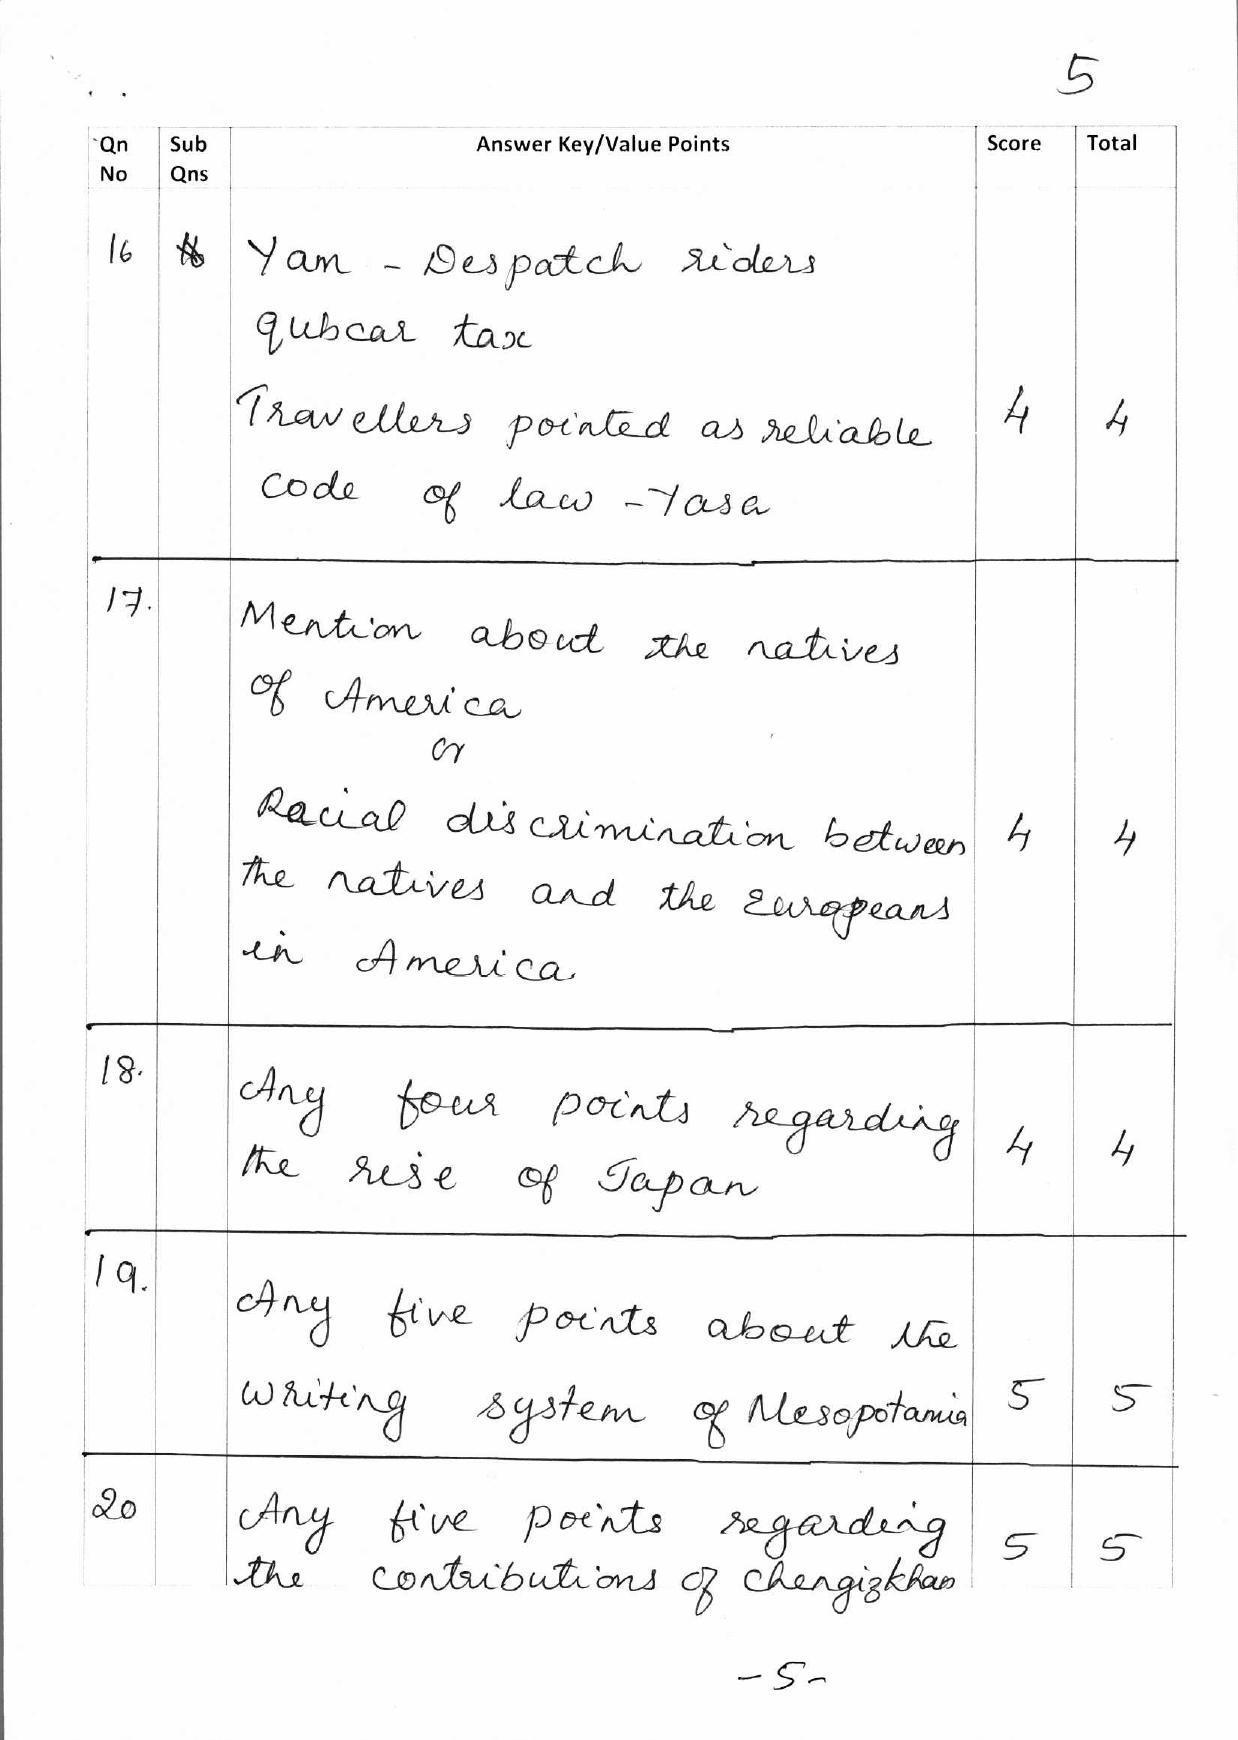 5
Qn No | Sub Qns | Answer Key/Value Points | Score | Total
16 | Yam - Despatch riders
qubcar tax
Travellers pointed as reliable | 4 | 4
code of law - Yasa
17. | Mention about the natives
of America
or
Racial discrimination between | 4 | 4
the natives and the Europeans
in America.
18. | Any four points regarding
the rise of Japan | 4 | 4
19. | Any five points about the
writing system of Mesopotamia | 5 | 5
20 | Any five points regarding
the contributions of Chengizkhan | 5 | 5
- 5 -